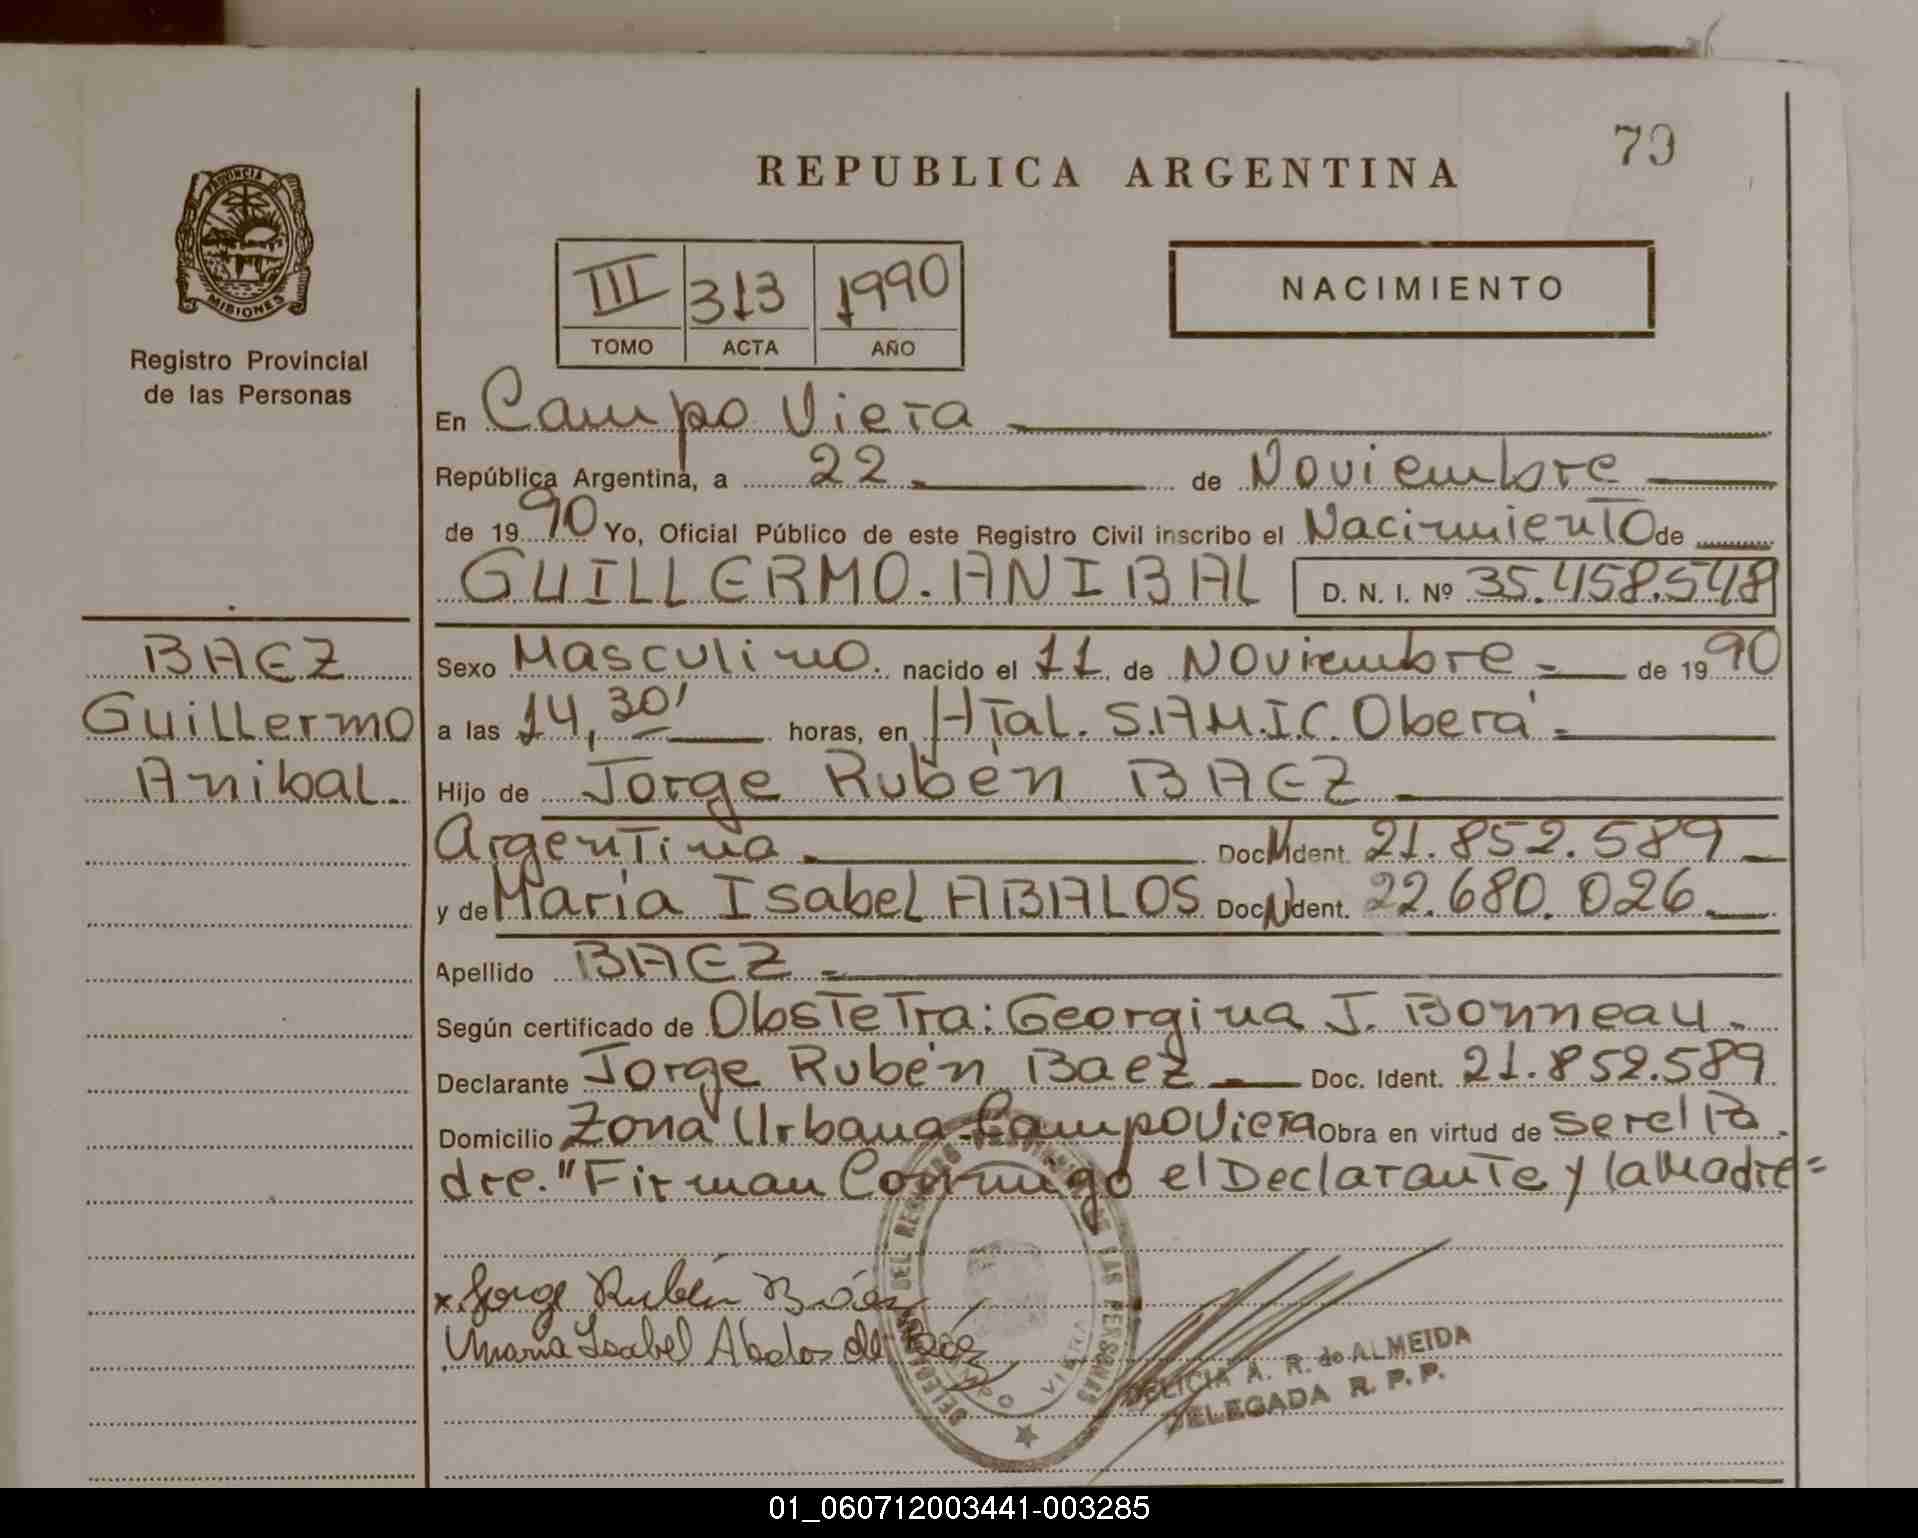 79
REPUBLICA ARGENTINA
PROVINCIA DE
MISIONES
Registro Provincial
de las Personas
III 313 1990
TOMO ACTA AÑO
NACIMIENTO
En Campo Viera
República Argentina, a 22 de Noviembre
de 1990 Yo, Oficial Público de este Registro Civil inscribo el Nacimiento de
GUILLERMO. ANIBAL D. N. I. Nº 35.458.548
BAEZ
Guillermo
Anibal.
Sexo Masculino. nacido el 11 de Noviembre = de 1990
a las 14,30' horas, en Htal. S.A.M.I.C. Oberá =
Hijo de Jorge Rubén BAEZ
Argentina. Doc N Ident. 21.852.589
y de María Isabel ABALOS Doc N Ident. 22.680.026.
Apellido BAEZ =
Según certificado de Obstetra: Georgina J. Bonneau.
Declarante Jorge Rubén Baez Doc. Ident. 21.852.589
Domicilio Zona Urbana Campo Viera Obra en virtud de ser el Pa
dre. "Firman Conmigo el Declarante y la Madre =
x Jorge Rubén Báez
Maria Isabel Abalos de Baez
DEL REGISTRO PROVINCIAL DE LAS PERSONAS
VIERA
DELICIA A. R. de ALMEIDA
DELEGADA R. P. P.
01_060712003441-003285